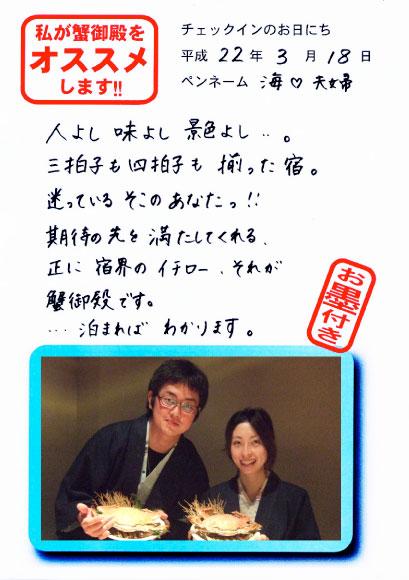 私が蟹御殿を
オススメ
します!!
チェックインのお日にち
平成 22 年 3 月 18 日
ペンネーム 海♡夫婦
人よし 味よし 景色よし…。
三拍子も四拍子も 揃った宿。
迷っている そこのあなたっ!!
期待の先を 満たしてくれる、
正に 宿界の イチロー、それが
蟹御殿です。
… 泊まれば わかります。
お墨付き